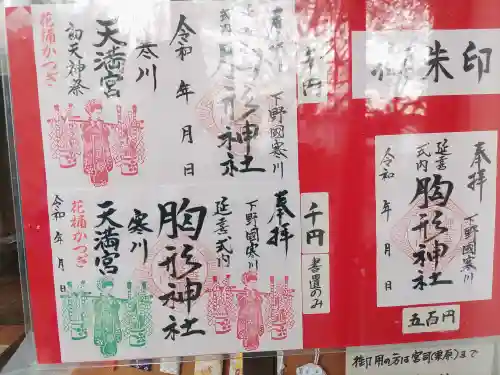 花桶かつぎ
初天神祭
天満宮
寒川
令和 年 月 日
延喜式内
胸形神社
下野國寒川
奉拝
千円
御朱印
花桶かつぎ
令和 年 月 日
天満宮
寒川
胸形神社
延喜式内
下野國寒川
奉拝
千円
書置のみ
令和 年 月 日
延喜式内
胸形神社
下野國寒川
奉拝
五百円
御用の方は宮司(東原)まで